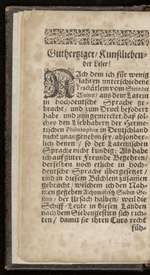 Gutherziger / Kunstlieben-
der Leser /
Nach dem ich für wenig
Jahren unterschiedene
Tractätlein vom Stein der
Weisen / aus dem Latein
in hochdeutsche Sprache ge-
bracht / und zum Druck befördert
habe / und nun gemercket / daß sol-
ches den Liebhabern der Herme-
tischen Philosophiæ in Deutschland
nicht unangenehm sey / absonder-
lich denen / so der Lateinischen
Sprache nicht kundig: Als habe
ich auff guter Freunde Begehren /
derselben noch etliche in hoch-
deutsche Sprache übergesetzet /
und in diesem Büchlein zusammen
gebracht / welchem ich den Nah-
men gegeben
der Ursach halben / weil die
Schiff-Leute in diesen Landen
nach dem Siebengestirn sich rich-
ten / damit sie ihren Curs recht
füh-